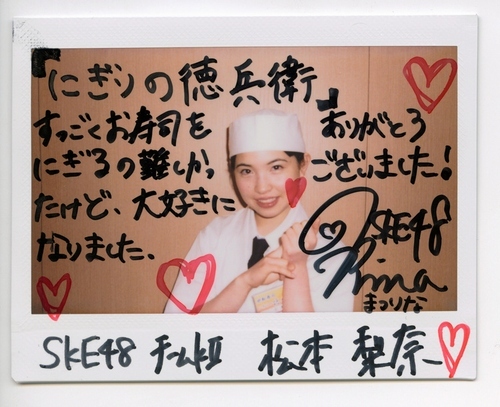 「にぎりの徳兵衛」
すっごくお寿司を
にぎるの難しかっ
たけど、大好きに
なりました。
ありがとう
ございました!
SKE48
Rina
まつりな
SKE48 チームKII 松本 梨奈